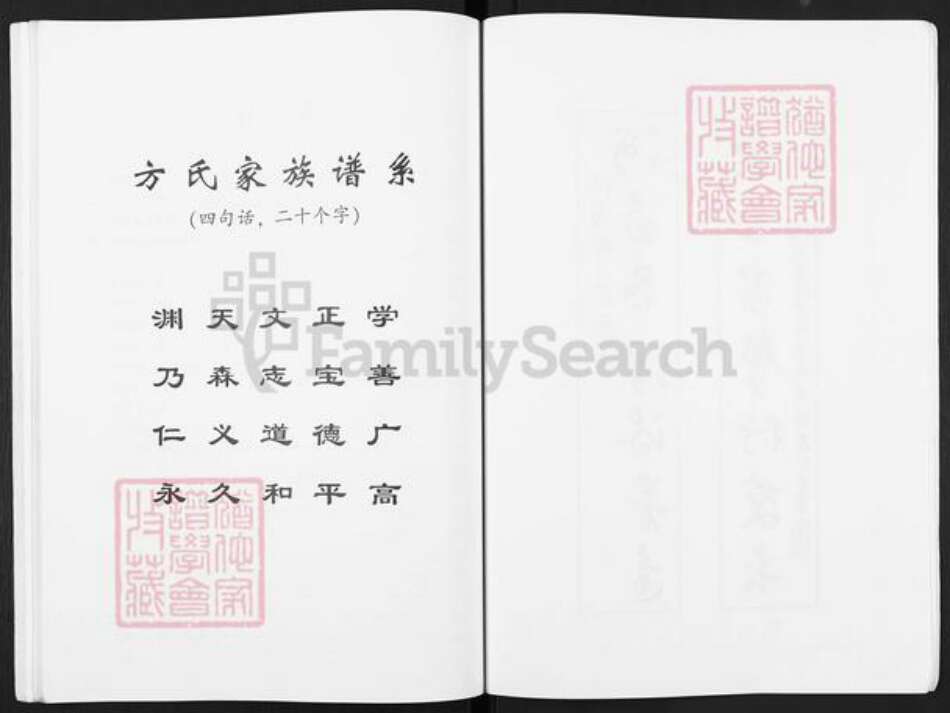 方氏家族谱系
(四句话，二十个字)
渊天文正学
乃森志宝善
仁义道德广
永久和平高
FamilySearch
猶他家譜學會收藏
猶他家譜學會收藏